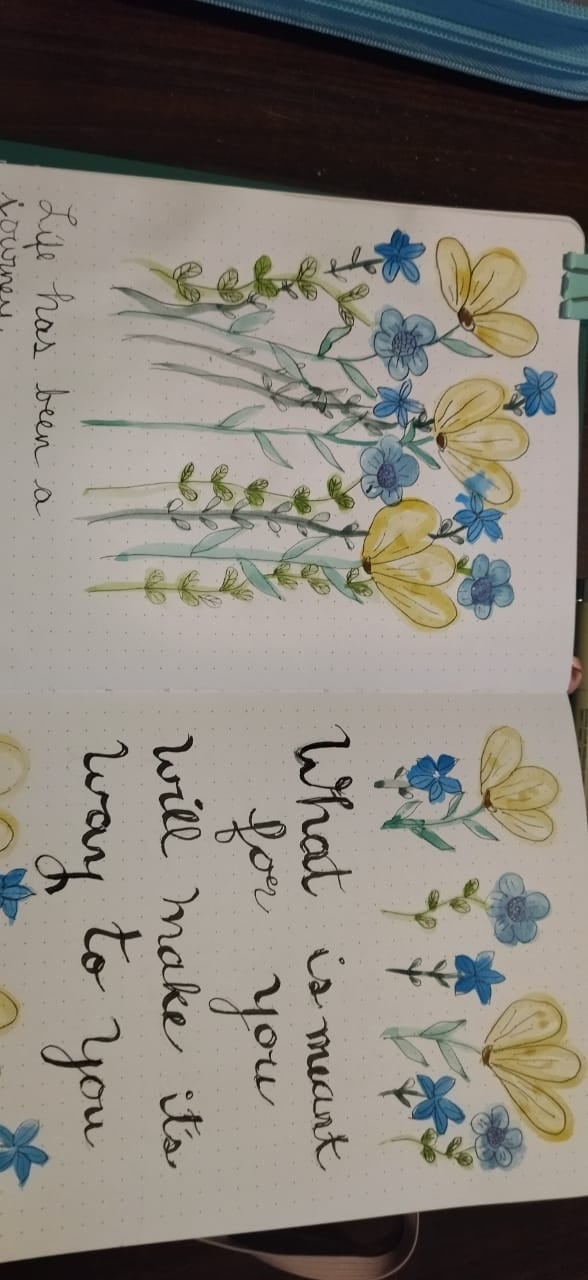 Life has been a
journey,
What is meant
for you
will make it's
way to you